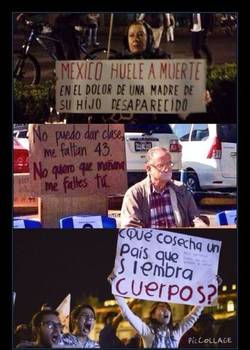 MÉXICO HUELE A MUERTE
EN EL DOLOR DE UNA MADRE DE
SU HIJO DESAPARECIDO
No puedo dar clase,
me faltan 43.
No quiero que mañana
me faltes TÚ.
¿QUÉ COSECHA UN
PAÍS QUE
SIEMBRA
CUERPOS?
PicCOLLAGE